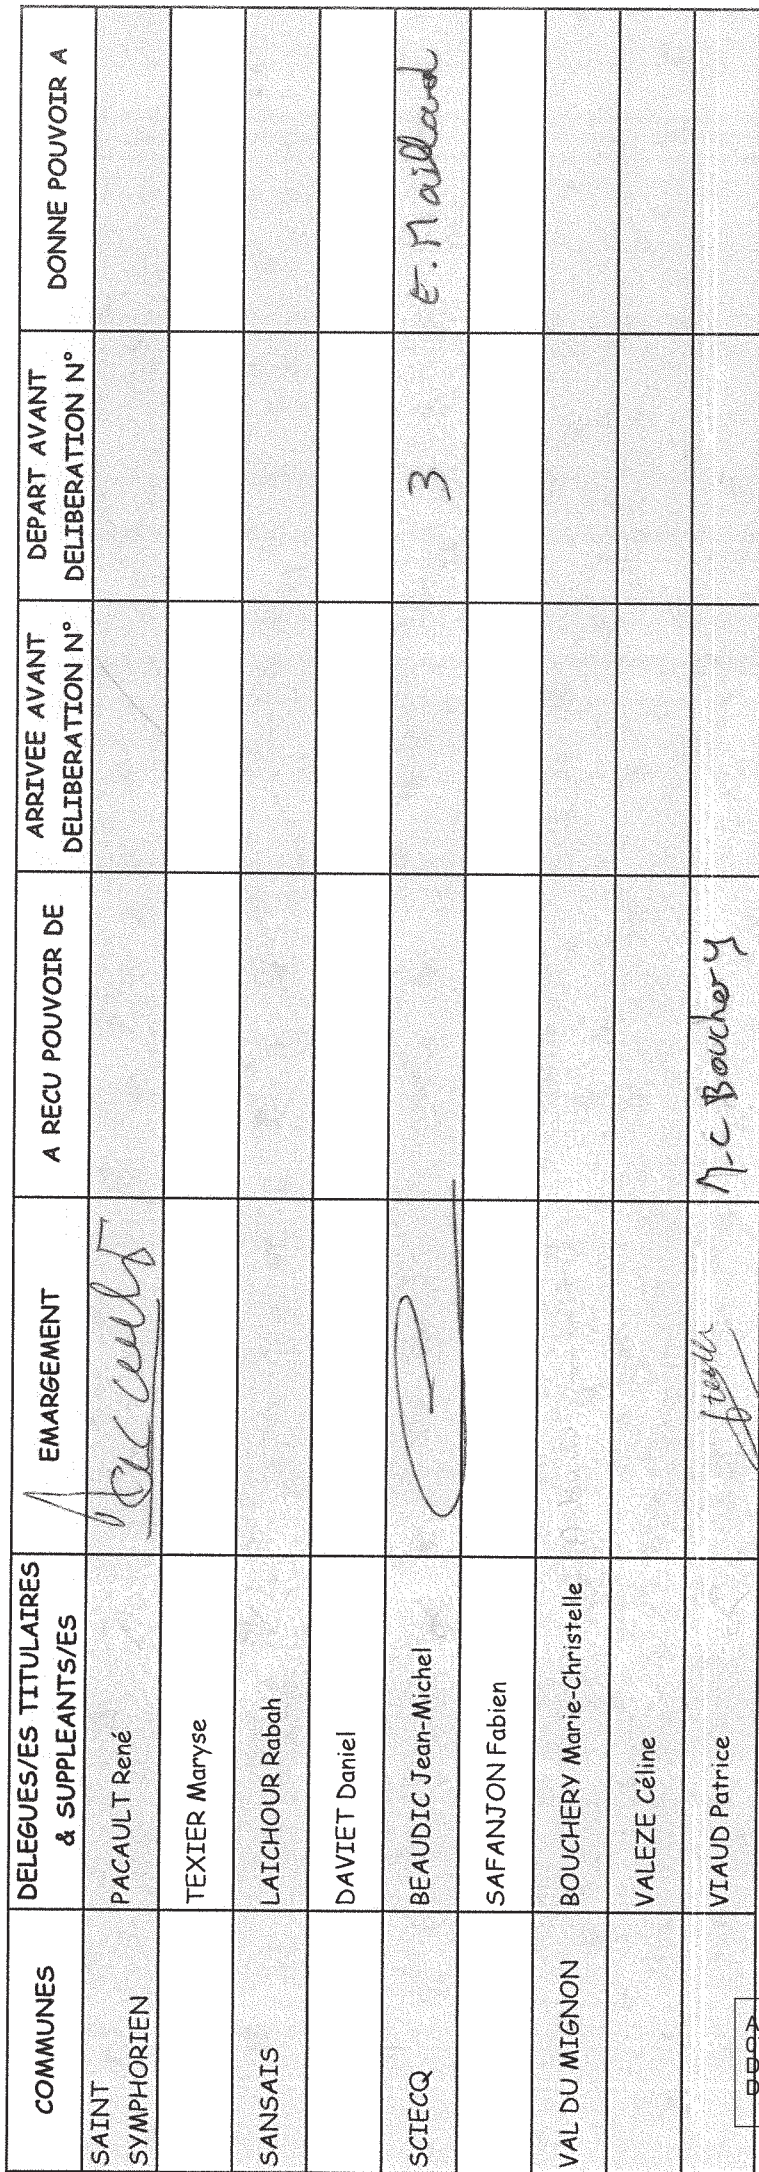 COMMUNES
DELEGUES/ES TITULAIRES
& SUPPLEANTS/ES
EMARGEMENT
A RECU POUVOIR DE
ARRIVEE AVANT
DELIBERATION N°
DEPART AVANT
DELIBERATION N°
DONNE POUVOIR A
SAINT
SYMPHORIEN
PACAULT René
TEXIER Maryse
SANSAIS
LAICHOUR Rabah
DAVIET Daniel
SCIECQ
BEAUDIC Jean-Michel
3
E. Maillard
SAFANJON Fabien
VAL DU MIGNON
BOUCHERY Marie-Christelle
VALEZE Céline
VIAUD Patrice
M-C Bouchery